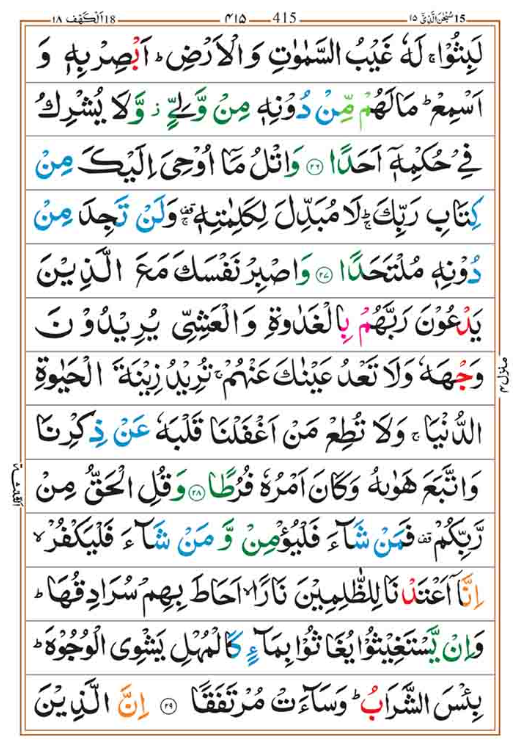 ١٨ اَلۡكَهۡف 18 ٤١٥ 415 سُبۡحٰنَ الَّذِىۡۤ ١٥ 15
لَبِثُوۡا‌ ۚ لَهٗ غَيۡبُ السَّمٰوٰتِ وَالۡاَرۡضِ‌ ؕ اَبۡصِرۡ بِهٖ وَ
اَسۡمِعۡ‌ ؕ مَا لَهُمۡ مِّنۡ دُوۡنِهٖ مِنۡ وَّلِىٍّ ز وَّلَا يُشۡرِكُ
فِىۡ حُكۡمِهٖۤ اَحَدًا‏ ﴿۲۶﴾ وَاتۡلُ مَاۤ اُوۡحِىَ اِلَيۡكَ مِنۡ
كِتَابِ رَبِّكَ ‌ؕ لَا مُبَدِّلَ لِكَلِمٰتِهٖ ‌ۚ قف وَلَنۡ تَجِدَ مِنۡ
دُوۡنِهٖ مُلۡتَحَدًا‏ ﴿۲۷﴾ وَاصۡبِرۡ نَفۡسَكَ مَعَ الَّذِيۡنَ
يَدۡعُوۡنَ رَبَّهُمۡ بِالۡغَدٰوةِ وَالۡعَشِىِّ يُرِيۡدُوۡنَ
وَجۡهَهٗ‌ وَلَا تَعۡدُ عَيۡنٰكَ عَنۡهُمۡ‌ ۚ تُرِيۡدُ زِيۡنَةَ الۡحَيٰوةِ
الدُّنۡيَا‌ ۚ وَلَا تُطِعۡ مَنۡ اَغۡفَلۡنَا قَلۡبَهٗ عَنۡ ذِكۡرِنَا
وَاتَّبَعَ هَوٰٮهُ وَكَانَ اَمۡرُهٗ فُرُطًا‏ ﴿۲۸﴾ وَقُلِ الۡحَـقُّ مِنۡ
رَّبِّكُمۡ‌ قف فَمَنۡ شَآءَ فَلۡيُؤۡمِنۡ وَّمَنۡ شَآءَ فَلۡيَكۡفُرۡ ۙ
اِنَّاۤ اَعۡتَدۡنَا لِلظّٰلِمِيۡنَ نَارًا ۙ اَحَاطَ بِهِمۡ سُرَادِقُهَا‌ ؕ
وَاِنۡ يَّسۡتَغِيۡثُوۡا يُغَاثُوۡا بِمَآءٍ كَالۡمُهۡلِ يَشۡوِى الۡوُجُوۡهَ‌ ؕ
بِئۡسَ الشَّرَابُ ؕ وَسَآءَتۡ مُرۡتَفَقًا‏ ﴿۲۹﴾ اِنَّ الَّذِيۡنَ
منزل ۴